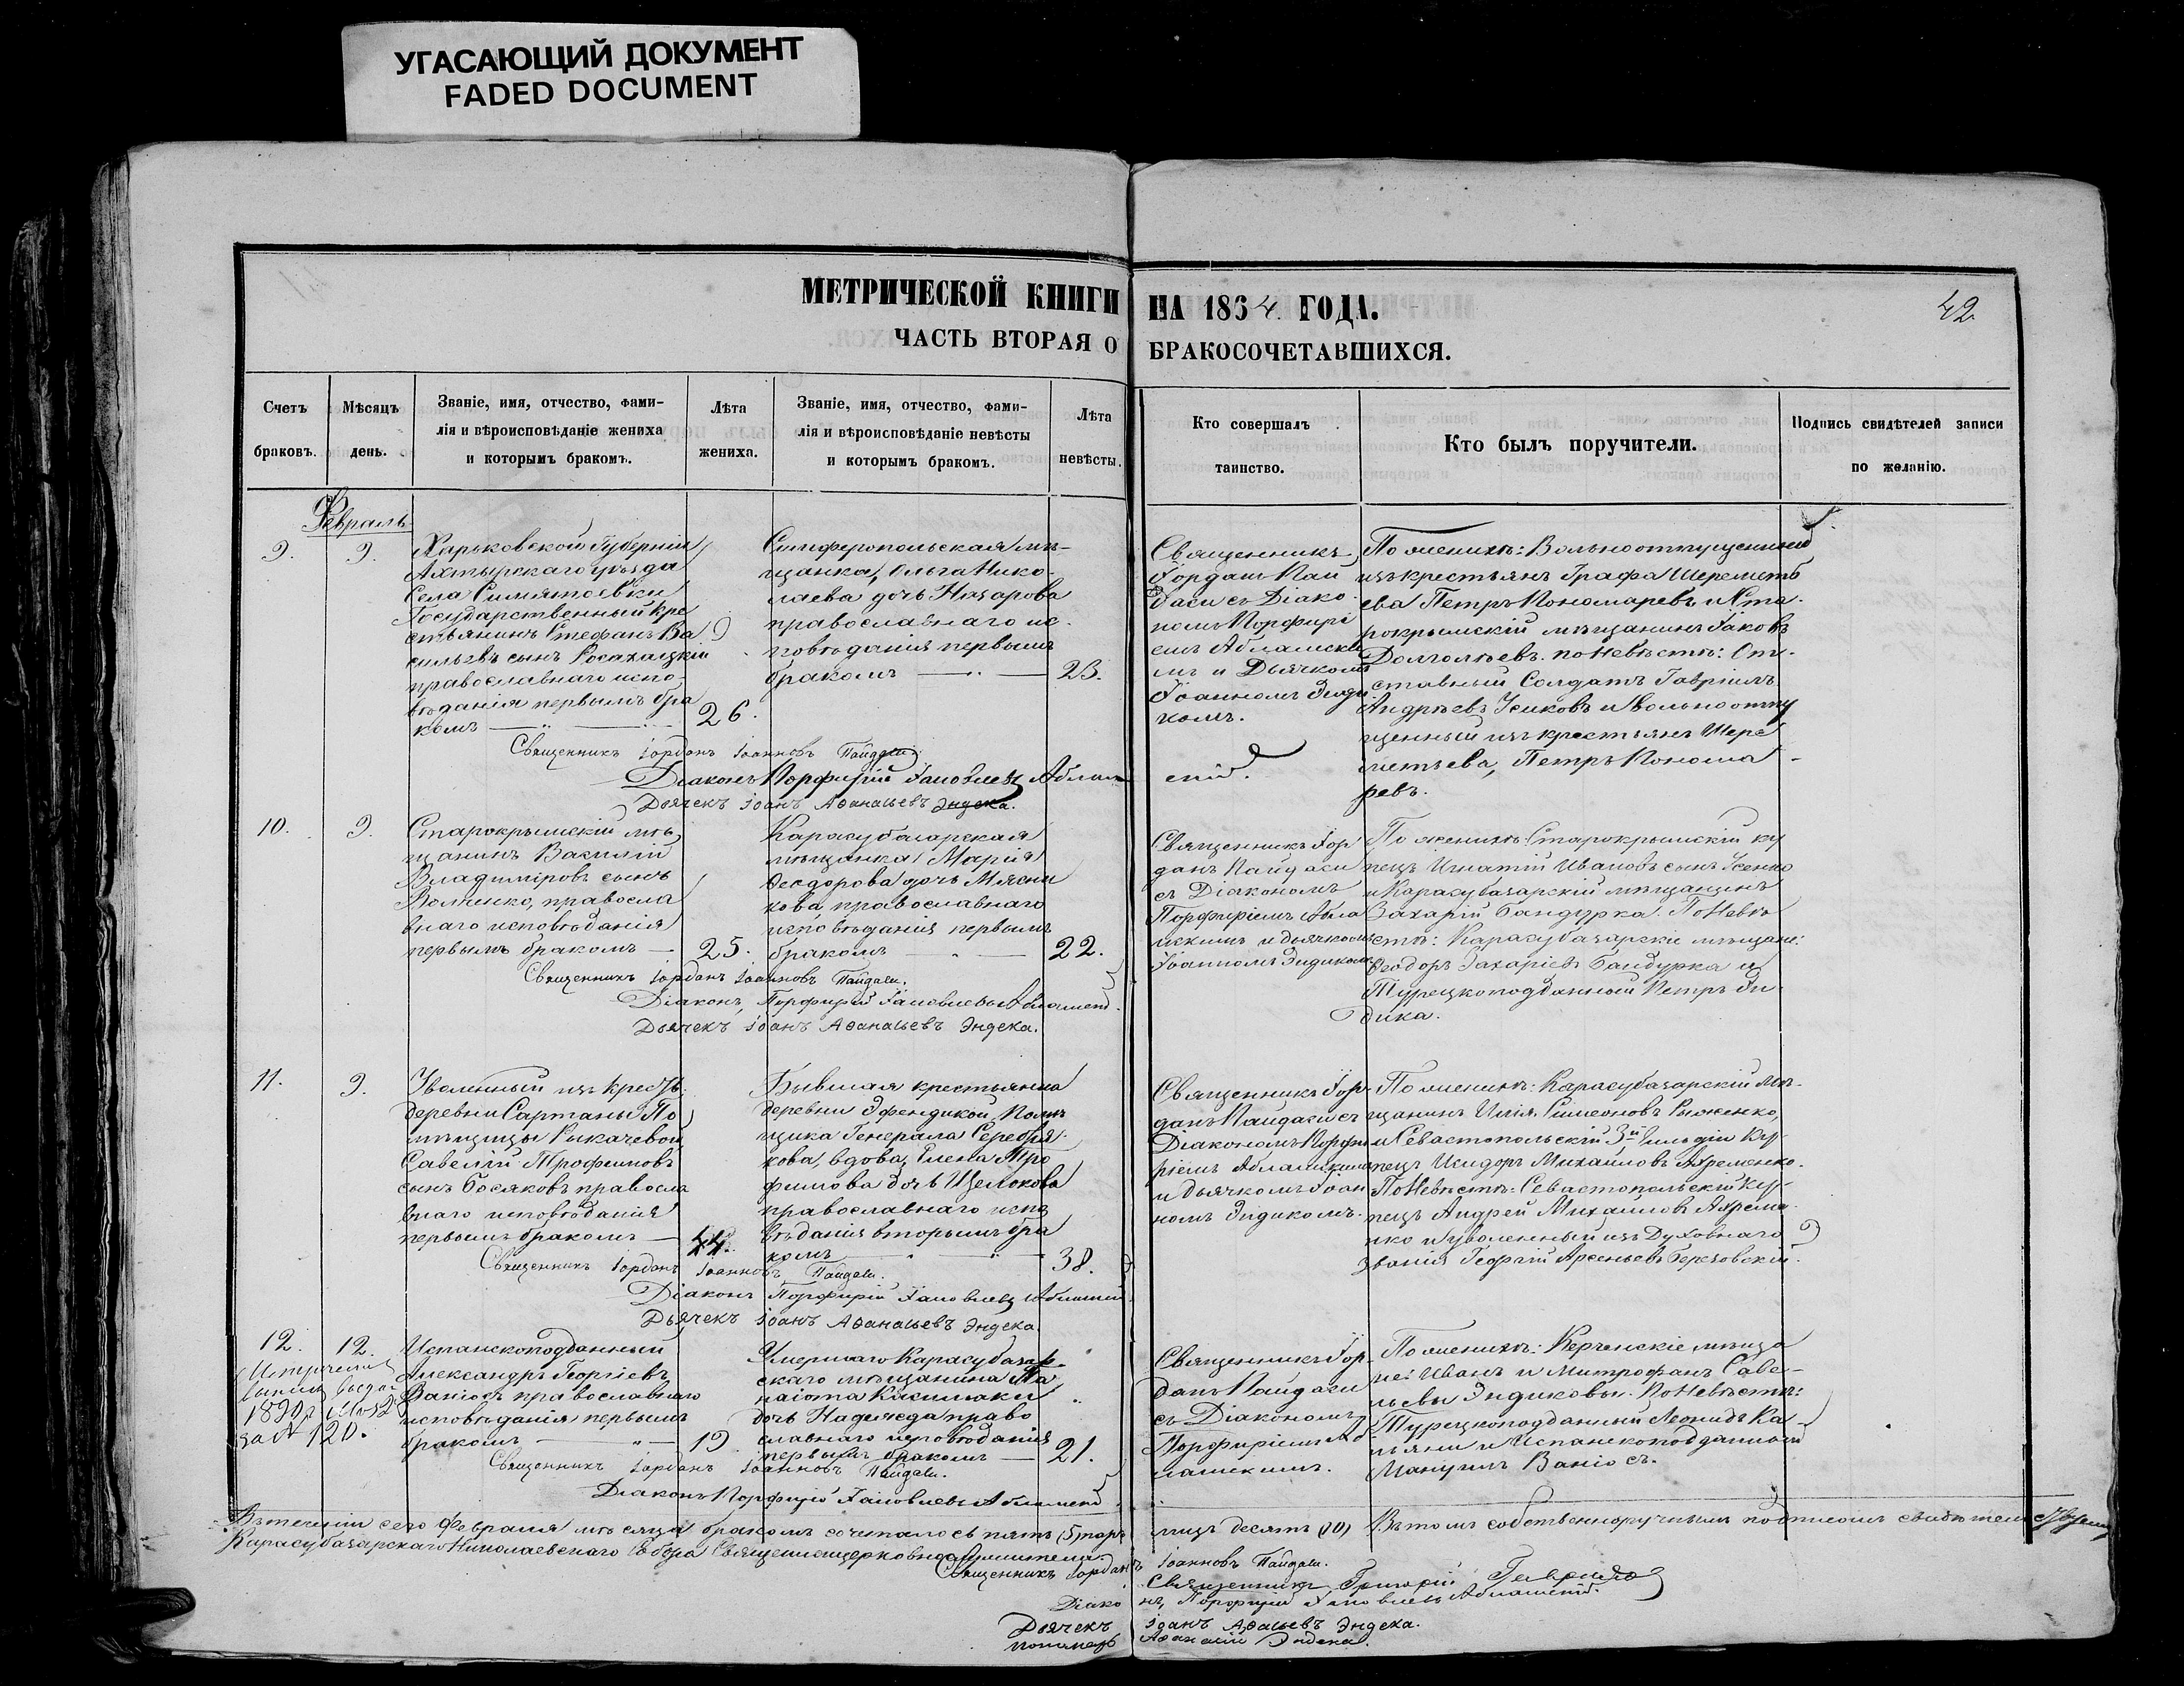 УГАСАЮЩИЙ ДОКУМЕНТ
FADED DOCUMENT
МЕТРИЧЕСКОЙ КНИГИ НА 1864 ГОДА.
42
ЧАСТЬ ВТОРАЯ О БРАКОСОЧЕТАВШИХСЯ.
Счетъ
браковъ.
Мѣсяцъ
день.
Званіе, имя, отчество, фами-
лія и вѣроисповѣданіе жениха
и которымъ бракомъ.
Лѣта
жениха.
Званіе, имя, отчество, фами-
лія и вѣроисповѣданіе невѣсты
и которымъ бракомъ.
Лѣта
невѣсты.
Кто совершалъ
таинство.
Кто былъ поручители.
Подпись свидѣтелей записи
по желанію.
Февраль
9.
9.
Харьковской Губерніи
Ахтырскаго уѣзда
Села
Государственный кре
стьянинъ Стефанъ Ва
сильевъ сынъ
православнаго испо-
вѣданія первымъ бра
комъ
26.
Симферопольская мѣ-
щанка, Ольга Нико-
лаева дочь Назарова
православнаго ис-
повѣданія первымъ
бракомъ
23.
Священникъ
Іорданъ Пай
даси съ Діако
номъ Порфирі
емъ Абламски
мъ и Дьячкомъ
Іоанномъ Энди
комъ.
По женихѣ: Вольноотпущенный
изъ крестьянъ Графа Шеремѣть
ева Петръ Пономаревъ и Ста-
рокрымскій мѣщанинъ Іаковъ
Долгополѣевъ. по Невѣстѣ: От-
ставный Солдатъ Гавріилъ
Андрѣевъ Усиковъ и Вольноотпу
щенный изъ крестьянъ Шере
метьева, Петръ Понома
ревъ.
Священникъ Іорданъ Іоанновъ Пайдаси.
Діаконъ Порфирій Іаковлевъ Аблам
скій.
Дьячекъ Іоанъ Афанасьевъ Эндека.
10.
9.
Старокрымскій мѣ
щанинъ Василій
Владиміровъ сынъ
Волченко, правосла
внаго исповѣданія
первымъ бракомъ
25.
Карасубазарская
мѣщанка Марія
Ѳеодорова дочь Мясни
кова, православнаго
исповѣданія первымъ
бракомъ
22.
Священникъ Іор
данъ Пайдаси
съ Діакономъ
Порфиріемъ Абла
мскимъ и дьячкомъ
Іоанномъ Эндикомъ
По женихѣ: Старокрымскій ку
пецъ Игнатій Ивановъ сынъ Усенко
и Карасубазарскій мѣщанинъ
Захарій Бандурка. По Невѣ
стѣ: Карасубазарскіе мѣщане:
Ѳеодоръ Захаріевъ Бандурка и
Турецкоподданный Петръ Эн-
дика.
Священникъ Іорданъ Іоанновъ Пайдаси.
Діаконъ, Порфирій Іаковлевъ Абламскій.
Дьячекъ Іоанъ Афанасьевъ Эндека.
11.
9.
Уволенный изъ крестья
деревни Сартаны По
мѣщицы Рыкачевой
Савелій Трофимовъ
сынъ Босяковъ правосла
внаго исповѣданія
первымъ бракомъ
44.
Бывшая крестьянка
деревни Эфендикой, Помѣ
щика Генерала Серебря-
кова, вдова, Елена Тро
фимова дочь Щелокова
православнаго испо
вѣданія вторымъ бра
комъ
38.
Священникъ Іор-
данъ Пайдаси съ
Діакономъ Порфи
ріемъ Абламскимъ
и дьячкомъ Іоан
номъ Эндикомъ.
По женихѣ: Карасубазарскій мѣ-
щанинъ Илія Симеоновъ Рыженко,
и Севастопольскій 3й гильдіи Ку-
пецъ Исидоръ Михайловъ Ахременко.
По Невѣстѣ: Севастопольскій Ку-
пецъ Андрей Михайловъ Ахреме-
нко и уволенный изъ Духовнаго
званія Георгій Арсеньевъ Березовскій.
Священникъ Іорданъ Іоанновъ Пайдаси.
Діаконъ Порфирій Іаковлевъ Абламскій
Дьячекъ Іоанъ Афанасьевъ Эндека.
12.
12.
1890
за № 120.
Испанскоподданный
Александръ Георгіевъ
Ваніосъ православнаго
исповѣданія первымъ
бракомъ
19
Умершаго Карасубазар-
скаго мѣщанина Па
наіота
дочь Надежда право
славнаго исповѣданія
первымъ бракомъ
21.
Священникъ Іор-
данъ Пайдаси
съ Діакономъ
Порфиріемъ Аб
ламскимъ.
По женихѣ: Керченскіе мѣща
не: Иванъ и Митрофанъ Саве-
льевы Эндиковы. По Невѣстѣ:
Турецкоподданный Леонидъ Ка-
и Испанскоподданный
Мануилъ Ваніосъ.
Священникъ Іорданъ Іоанновъ Пайдаси.
Діаконъ Порфирій Іаковлевъ Абламскій
Въ теченіи сего Февраля мѣсяца бракомъ сочеталось пять (5) паръ лицъ десять (10) Въ томъ собственноручнымъ подписомъ свидѣтельствуемъ
Карасубазарскаго Николаевскаго Собора Священноцерковнослужители.
Священникъ Іорданъ Іоанновъ Пайдаси.
Священникъ Григорій
Діаконъ, Порфирій Іаковлевъ Абламскій.
Дьячекъ Іоанъ Афанасьевъ Эндека.
Пономарь Афанасій Эндека.